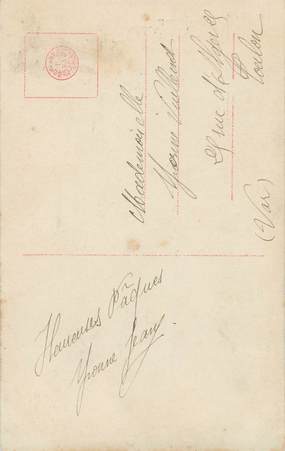 Mademoiselle
Yvonne
rue
Toulon
(Var)
Heureuses Pâques
Yvonne Jeany